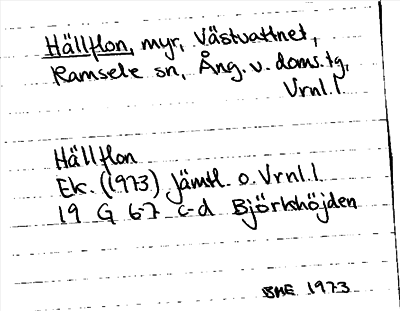 Hällflon, myr, Västvattnet,
Ramsele sn, Ång. v. doms.tg,
Vrnl. l.
Hällflon
Ek. (1973) Jämtl. o. Vrnl. l.
19 G 67 c-d Björkhöjden
BHE 1973